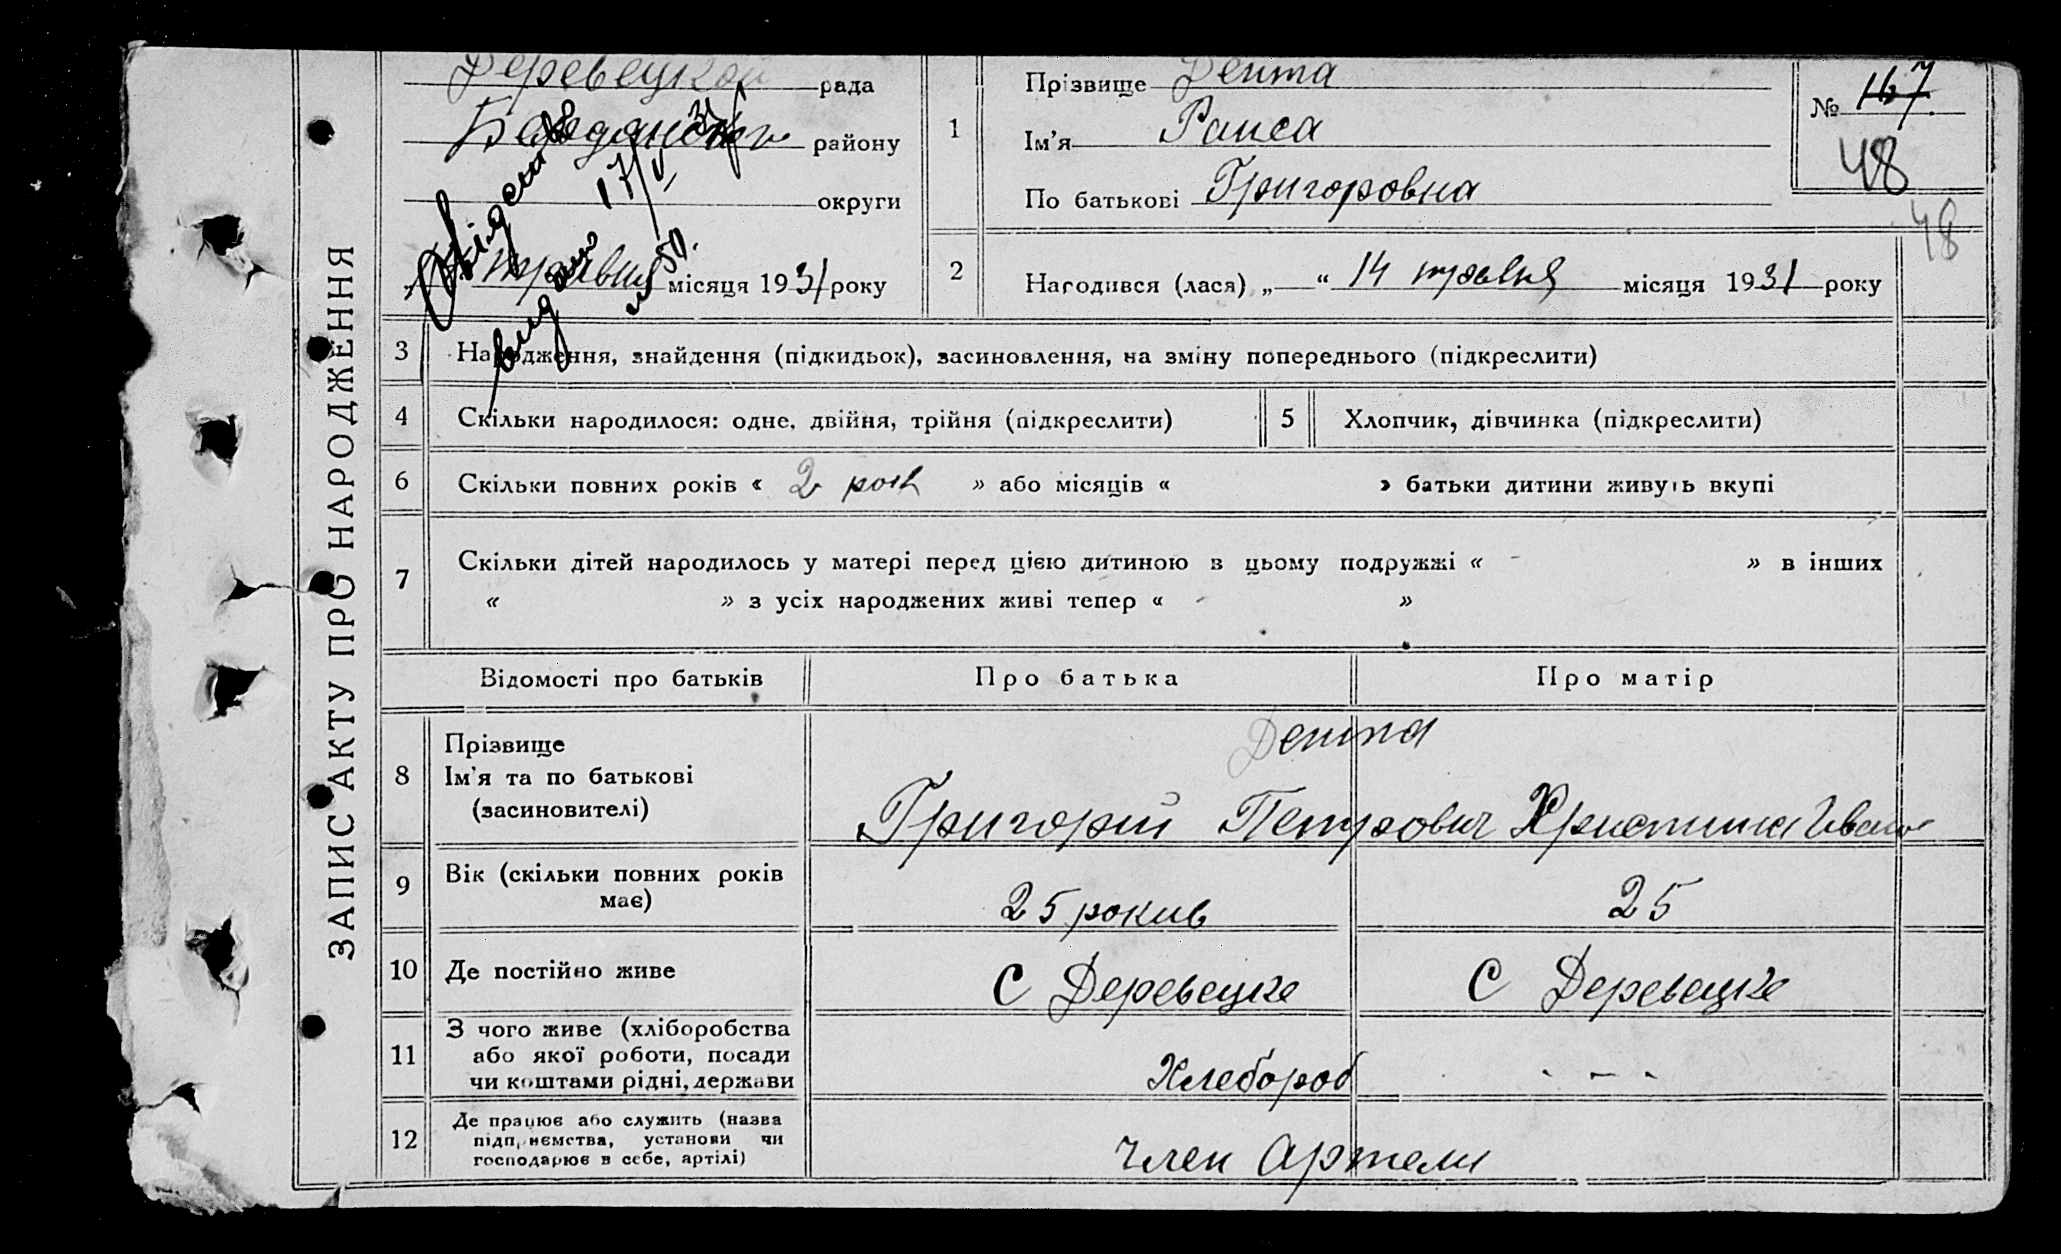 ЗАПИС АКТУ ПРО НАРОДЖЕННЯ
Деревецкой рада
району
округи
травня місяця 1931 року
Свідоцтво
видано 17/V
1
Прізвище Депта
Ім'я Раиса
По батькові Григоровна
№ 167
48
48
2 Народився (лася) „ “ 14 травня місяця 1931 року
3 Народження, знайдення (підкидьок), засиновлення, на зміну попереднього (підкреслити)
4 Скільки народилося: одне, двійня, трійня (підкреслити) 5 Хлопчик, дівчинка (підкреслити)
6 Скільки повних років « 2 » або місяців « » батьки дитини живуть вкупі
7 Скільки дітей народилось у матері перед цією дитиною в цьому подружжі « - » в інших
« » з усіх народжених живі тепер « - »
Відомості про батьків Про батька Про матір
8 Прізвище
Ім'я та по батькові
(засиновителі)
Депта
Григорий Петрович Христина Ивано
9 Вік (скільки повних років
має)
25 рокив 25
10 Де постійно живе С Деревецке С Деревецке
11 З чого живе (хліборобства
або якої роботи, посади
чи коштами рідні, держави
Хлебороб - — -
12 Де працює або служить (назва
підприємства, установи чи
господарює в себе, артілі)
Член Артели